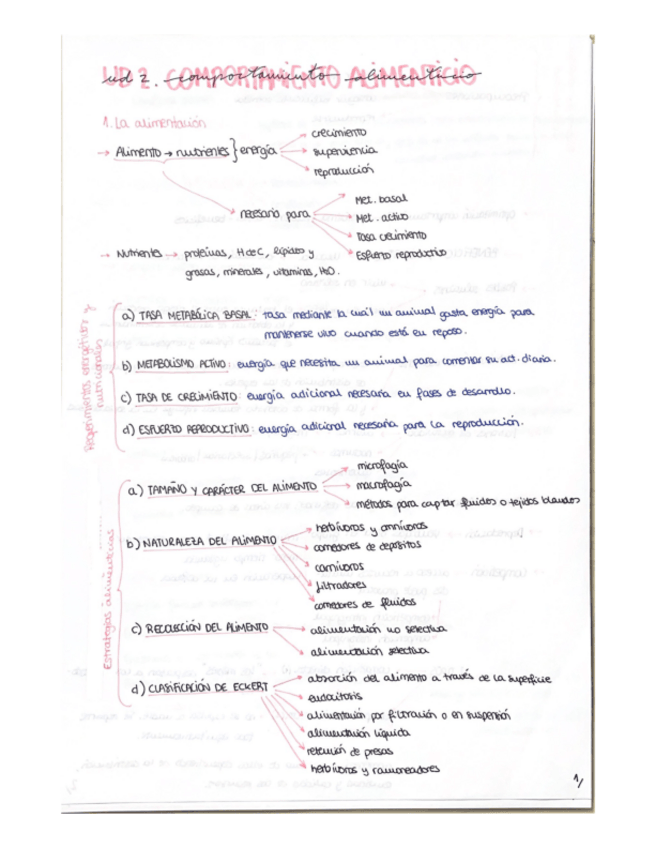 UD 2. COMPORTAMIENTO ALIMENTICIO
ud 2. comportamiento alimenticio
1. La alimentación
→ Alimento → nutrientes } energía
crecimiento
supervivencia
reproducción
necesario para
Met. basal
Met. activo
Tasa crecimiento
Esfuerzo reproductivo
→ Nutrientes → proteínas, H de C, lípidos y
grasas, minerales, vitaminas, H2O.
Requerimientos energéticos y
nutricionales
a) TASA METABÓLICA BASAL: tasa mediante la cual un animal gasta energía para
mantenerse vivo cuando está en reposo.
b) METABOLISMO ACTIVO: energía que necesita un animal para comentar su act. diaria.
c) TASA DE CRECIMIENTO: energía adicional necesaria en fases de desarrollo.
d) ESFUERZO REPRODUCTIVO: energía adicional necesaria para la reproducción.
Estrategias alimenticias
a) TAMAÑO Y CARÁCTER DEL ALIMENTO
microfagia
macrofagia
métodos para captar fluidos o tejidos blandos
b) NATURALEZA DEL ALIMENTO
herbívoros y omnívoros
comedores de depósitos
carnívoros
filtradores
comedores de fluidos
c) RECOLECCIÓN DEL ALIMENTO
alimentación no selectiva
alimentación selectiva
d) CLASIFICACIÓN DE ECKERT
absorción del alimento a través de la superficie
endocitosis
alimentación por filtración o en suspensión
alimentación líquida
retención de presas
herbívoros y ramoneadores
1/